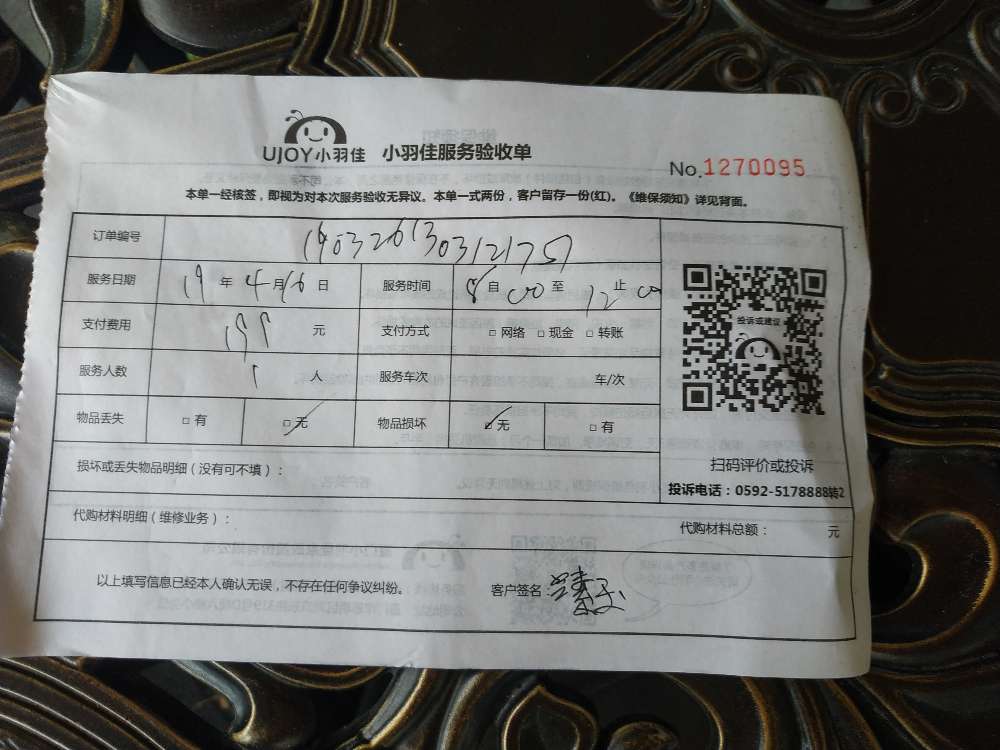 UJOY小羽佳 小羽佳服务验收单
No.1270095
本单一经核签，即视为对本次服务验收无异议。本单一式两份，客户留存一份(红)。《维保须知》详见背面。
订单编号 1903261303121757
服务日期 19 年 4 月 16 日 服务时间 8 自 00 至 12 止 00
支付费用 199 元 支付方式 □ 网络 □ 现金 □ 转账
投诉或建议
服务人数 1 人 服务车次 车/次
物品丢失 □ 有 □ 无 物品损坏 □ 无 □ 有
扫码评价或投诉
损坏或丢失物品明细（没有可不填）：
投诉电话：0592-5178888转2
代购材料明细（维修业务）： 代购材料总额： 元
以上填写信息已经本人确认无误，不存在任何争议纠纷。 客户签名：